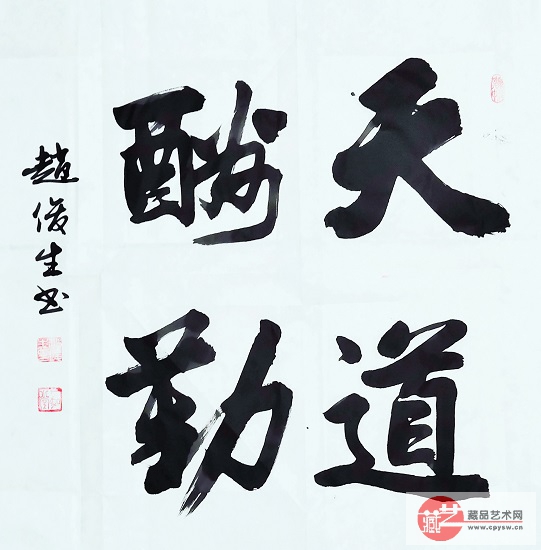 天道
酬勤
趙俊生书
藏艺
藏品艺术网
www.cpysw.cn